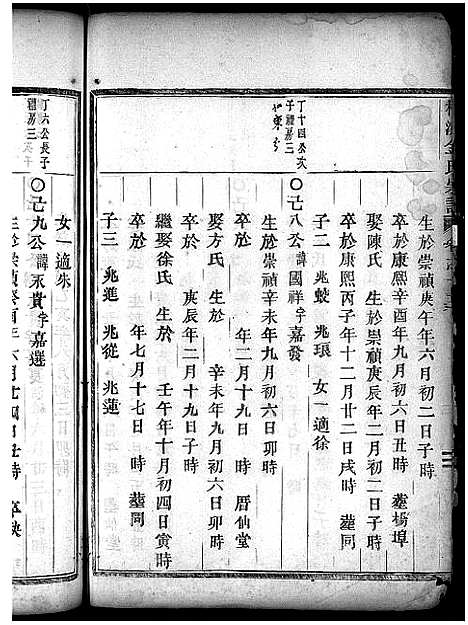 生於崇禎庚午年六月初二日子時
卒於康熙辛酉年九月初六日丑時 塟楊埠
娶陳氏 生於崇禎庚辰年二月初二日子時
卒於康熙丙子年十二月廿二日戌時 塟同
子二 兆蛟 兆琅 女一適徐
丁十四公次
子禮易三
〇己八公諱國祥字嘉發
生於崇禎辛未年九月初六日卯時
卒於 年二月十九日 時 厝仙堂
娶方氏 生於 辛未年九月初六日卯時
卒於 庚辰年二月十九日子時
繼娶徐氏 生於 壬午年十月初四日寅時
卒於 年七月十七日 時 塟同
子三 兆進 兆從 兆蓮
女一適朱
丁六公長子
禮易三
〇己九公諱永貴字嘉選
生於崇禎癸酉年六月十四日丑時 卒缺